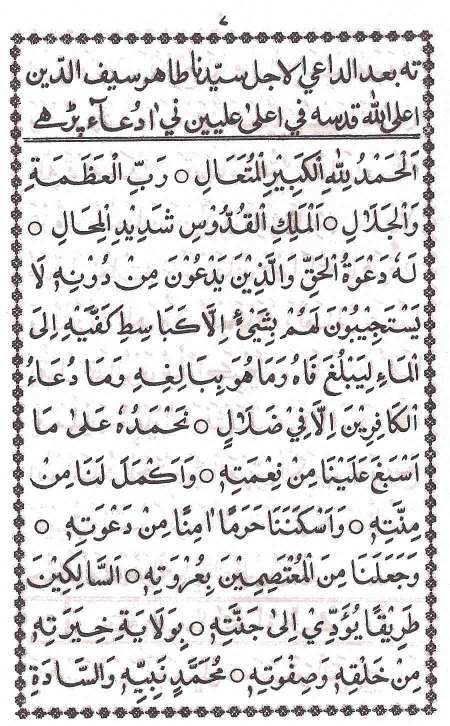 ٧
ته بعد الداعي الاجل سيّدنا طاهر سيف الدّين
اعلى الله قدسه في اعلى عليين في ا دُعآء پڑهے
اَلْحَمْدُ لِلّٰهِ الْكَبِيْرِ الْمُتَعَالِ ○ رَبِّ الْعَظَمَةِ
وَالْجَلَالِ ○ اَلْمَلِكِ الْقُدُّوْسِ شَدِيْدِ الْمِحَالِ ○
لَهٗ دَعْوَةُ الْحَقِّ وَالَّذِيْنَ يَدْعُوْنَ مِنْ دُوْنِهٖ لَا
يَسْتَجِيْبُوْنَ لَهُمْ بِشَيْئٍ اِلَّا كَبَاسِطِ كَفَّيْهِ اِلَى
الْمَاءِ لِيَبْلُغَ فَاهُ وَمَا هُوَ بِبَالِغِهٖ وَمَا دُعَاءُ
الْكَافِرِيْنَ اِلَّا فِيْ ضَلَالٍ ○ نَحْمَدُهٗ عَلٰى مَا
اَسْبَغَ عَلَيْنَا مِنْ نِعْمَتِهٖ ○ وَاَكْمَلَ لَنَا مِنْ
مِنَّتِهٖ ○ وَاَسْكَنَنَا حَرَمًا اٰمِنًا مِنْ دَعْوَتِهٖ ○
وَجَعَلَنَا مِنَ الْمُعْتَصِمِيْنَ بِعُرْوَتِهٖ ○ السَّالِكِيْنَ
طَرِيْقًا يُؤَدِّيْ اِلٰى جَنَّتِهٖ ○ بِوَلَايَةِ خِيَرَتِهٖ
مِنْ خَلْقِهٖ وَصِفْوَتِهٖ ○ مُحَمَّدٍ نَبِيِّهٖ وَالسَّادَةِ